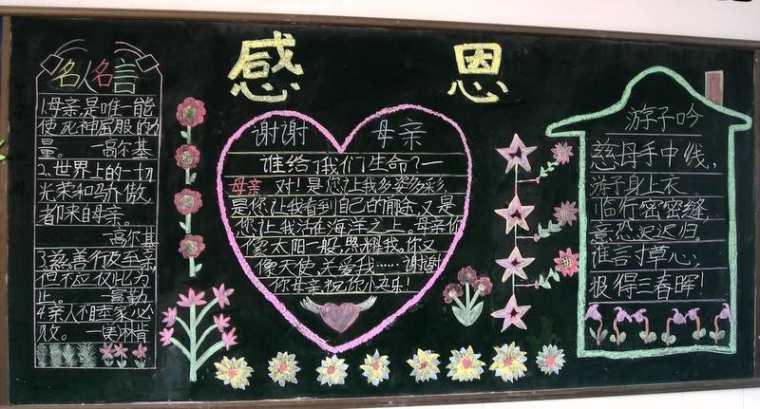 感 恩
名人名言
1.母亲,是唯一能
使死神屈服的力
量。 —高尔基
2.世界上的一切
光荣和骄傲,
都来自母亲。
高尔基
止。
4.亲人不睦家必
败。 —美林肯
谢谢 母亲
谁给了我们生命?—
母亲 对!是您让我多姿多彩
是您让我看到自己的前途,又是
您让我活在海洋之上,母亲你
像太阳一般,照耀我。你又
像天使,关爱我……谢谢
你母亲祝你快乐!
游子吟
慈母手中线,
游子身上衣
临行密密缝,
意恐迟迟归。
谁言寸草心,
报得三春晖!